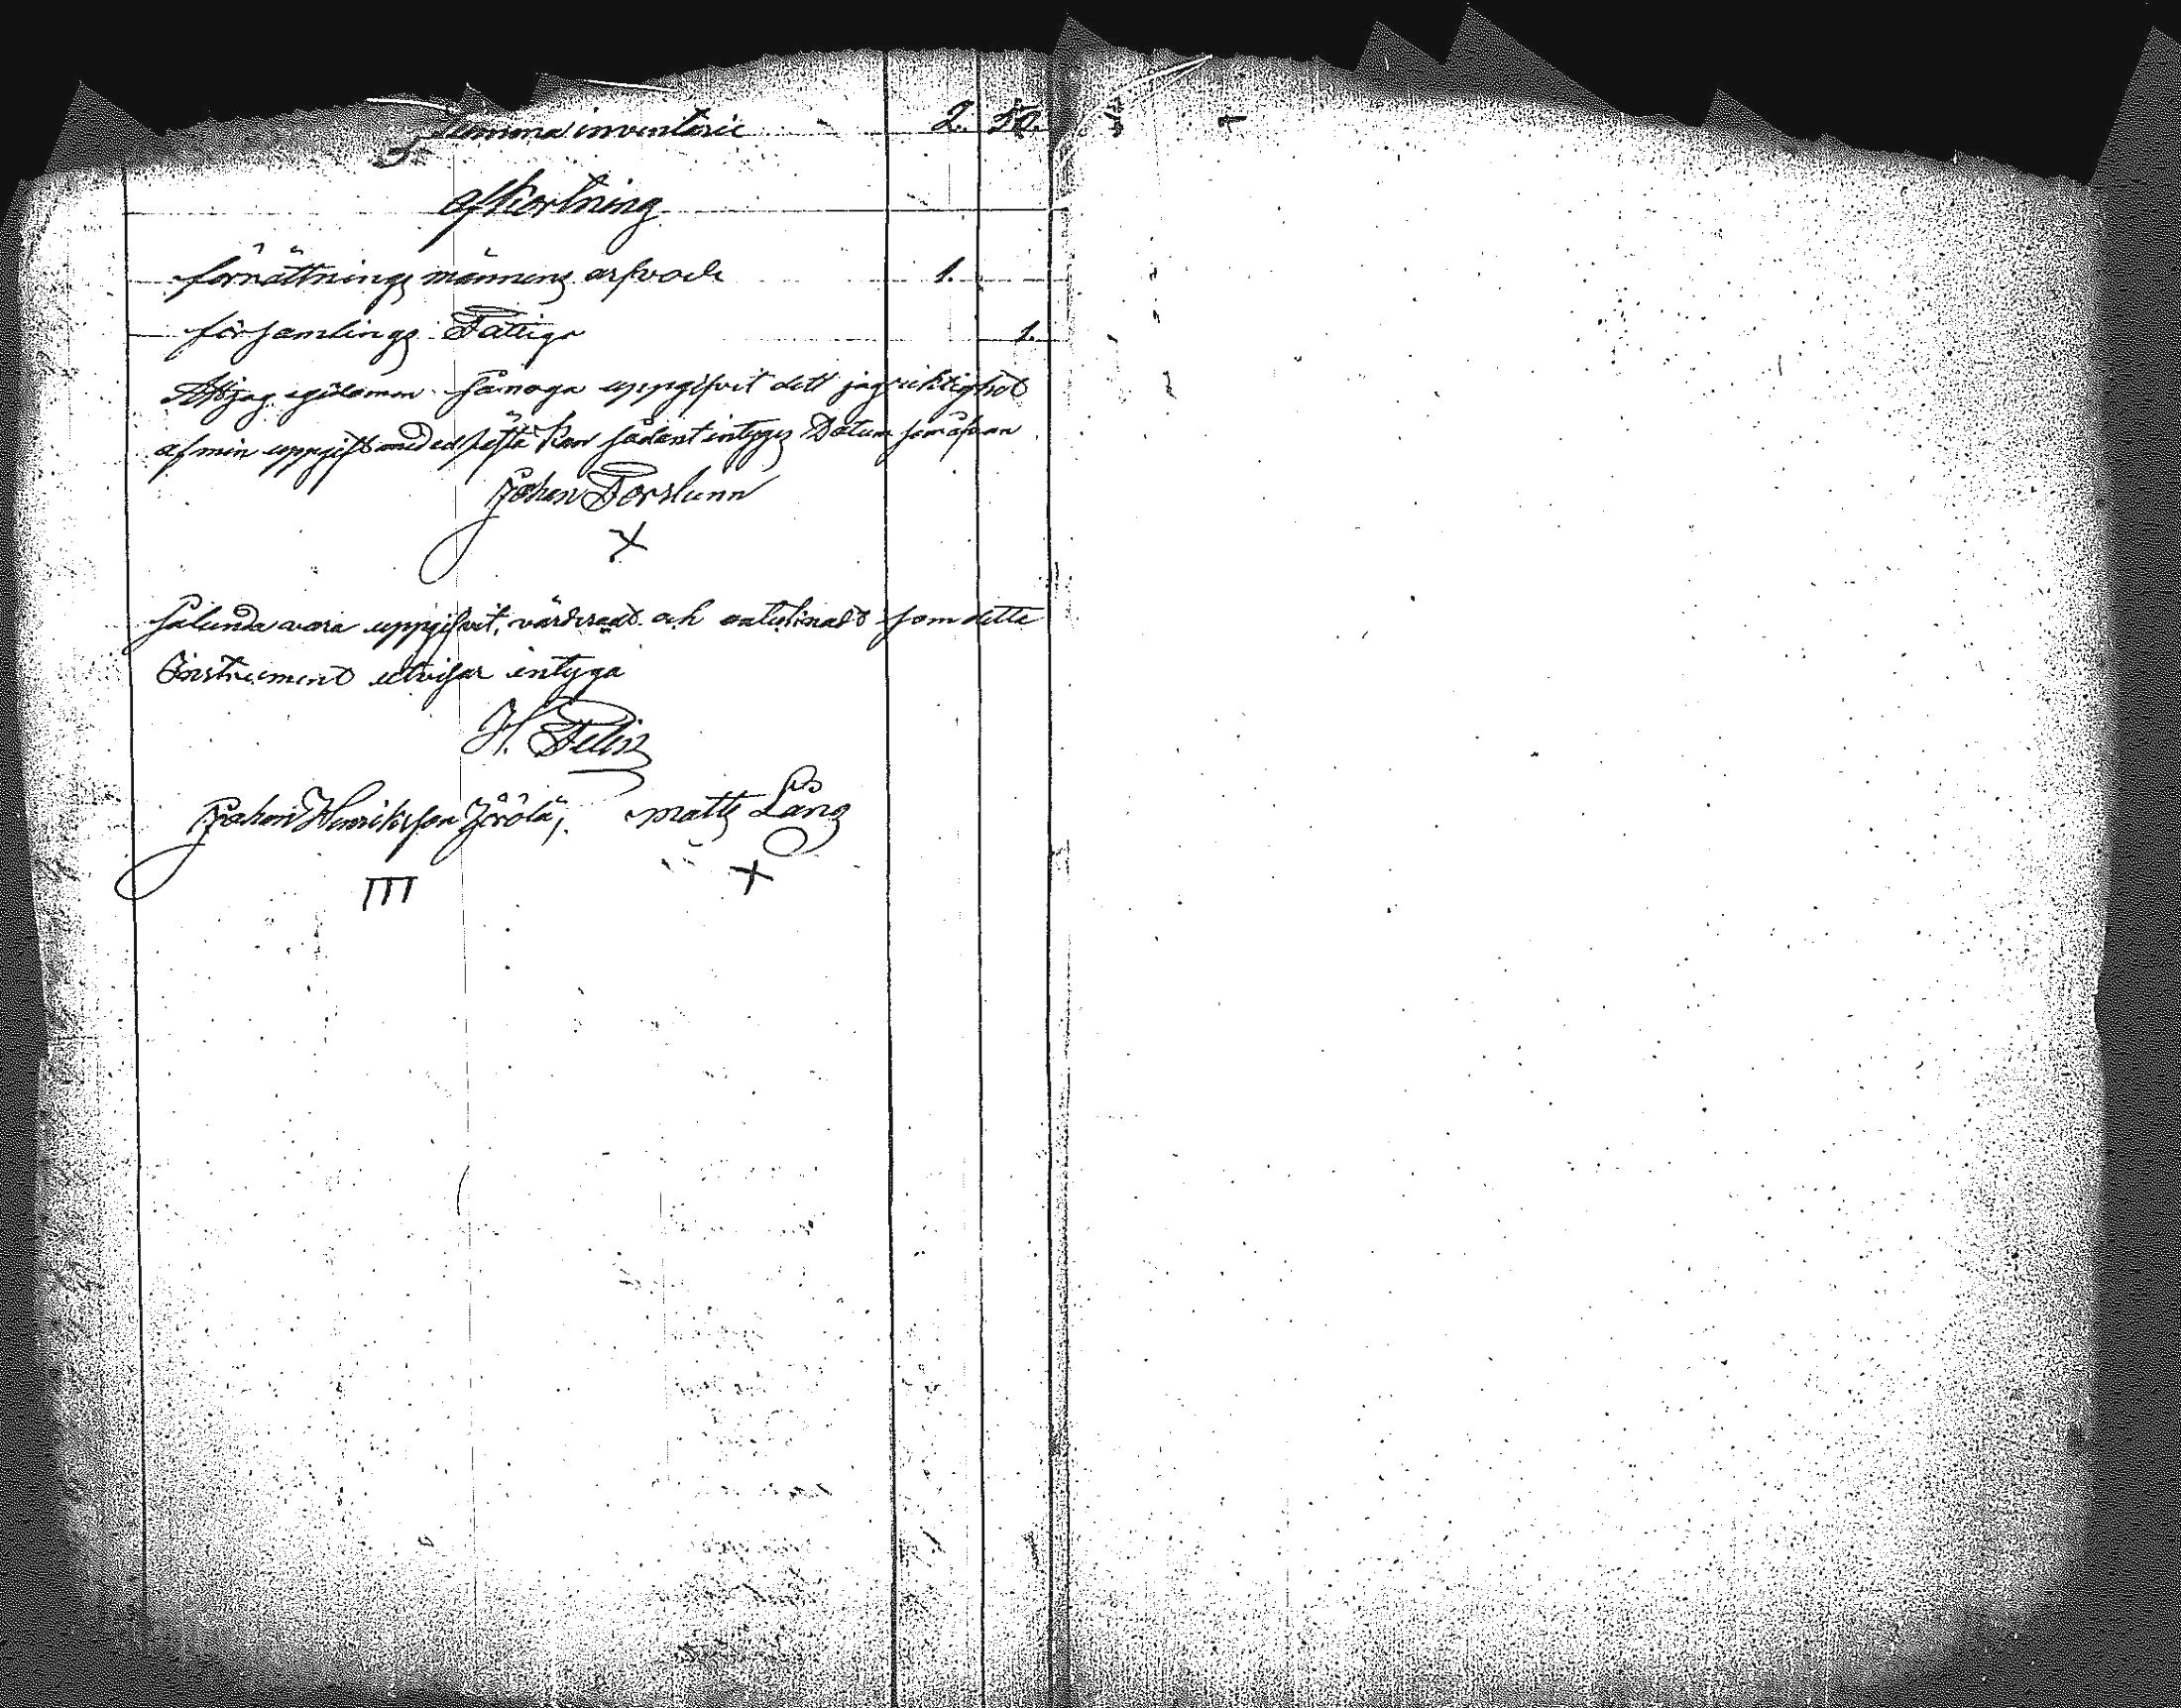 Summa inventarie 2. 50.
afkortning
förrättnings männens arfvode 1.
församlings Fattiga 1.
Att jag egidomen så noga uppgifvit dett jag riktighet
af min uppgift med ed fästa kan sådant intygas Datum som ofvan
Johan Forslunn
X
sålunda vara uppgifvit, värderadt och antecknadt som dette
Instrument utvisar intyga
H. Felin
Johan Henriksson Jåfs Matts Lång
III X